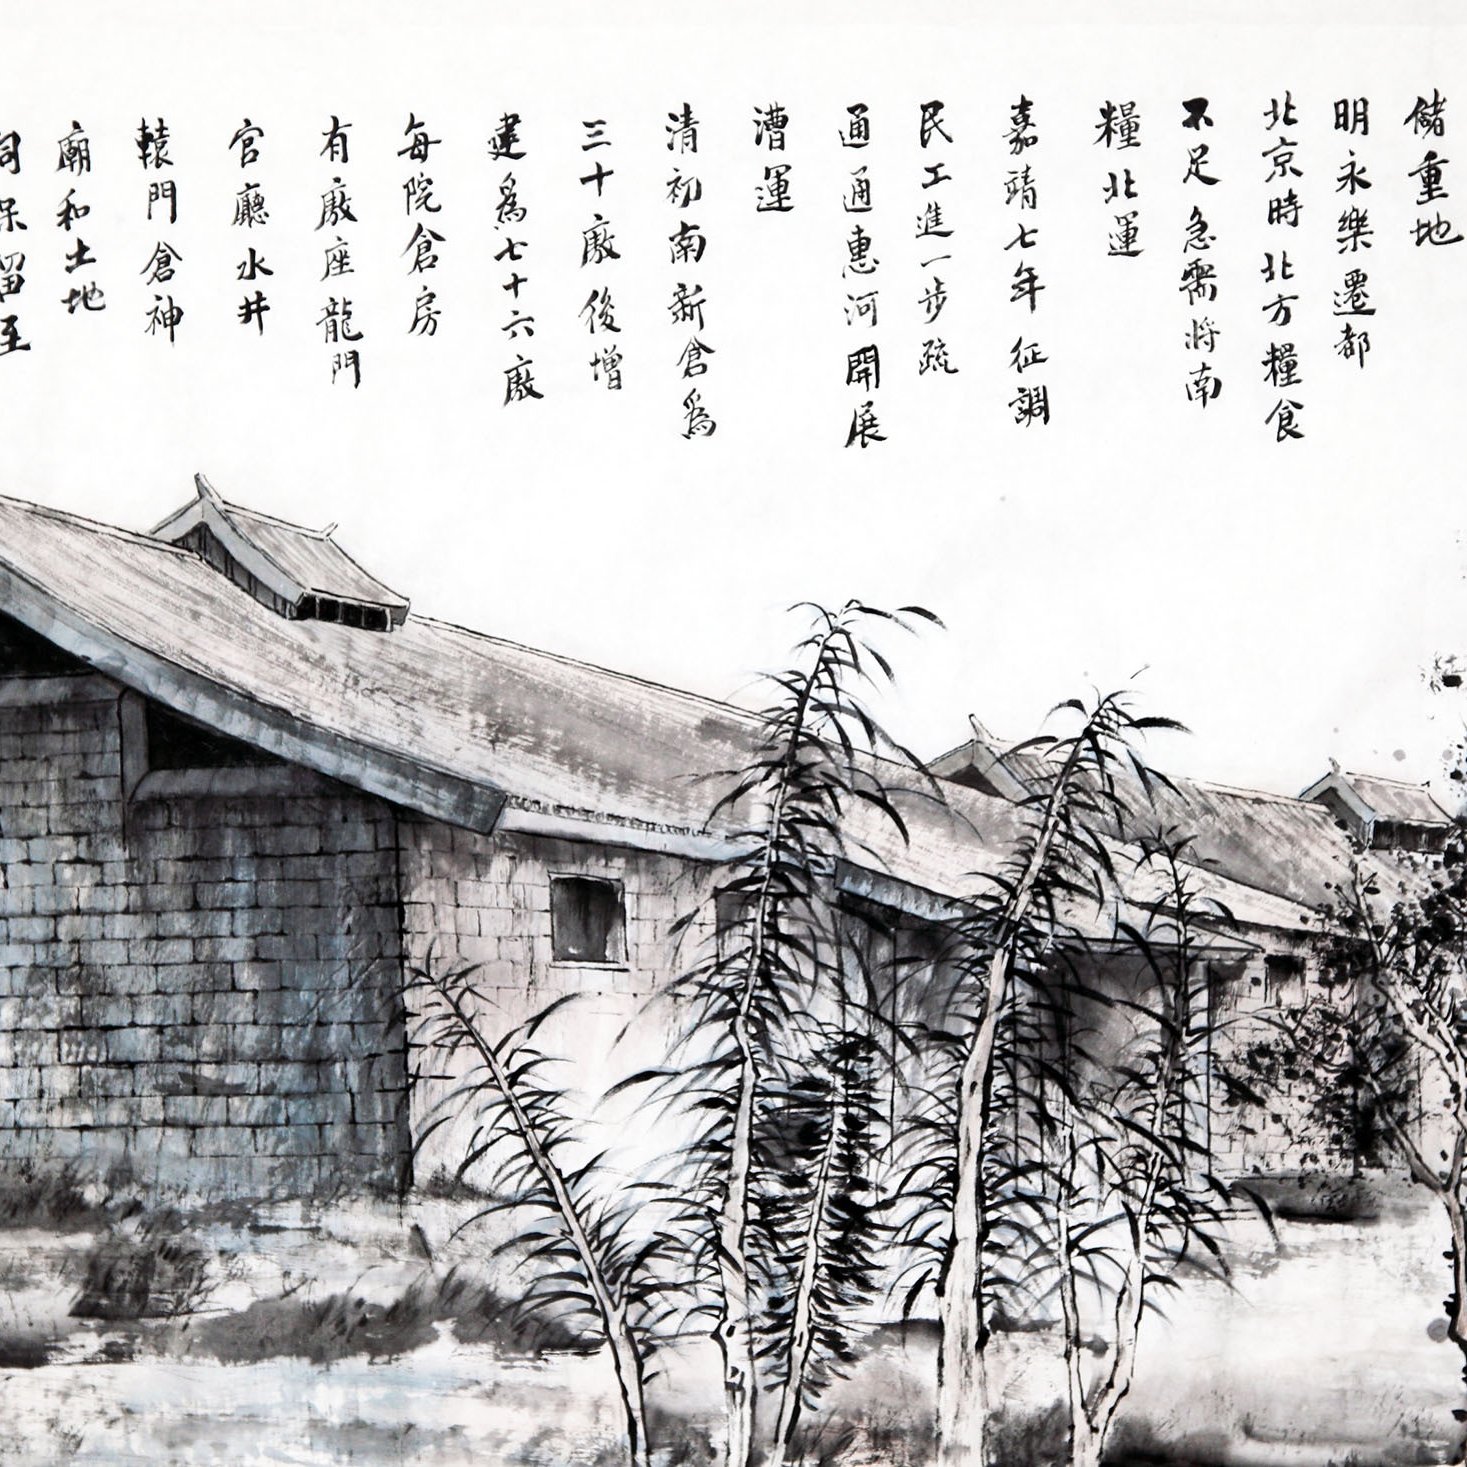 儲重地
明永樂遷都
北京時北方糧食
不足急需將南
糧北運
嘉靖七年征調
民工進一步疏
通通惠河開展
漕運
清初南新倉為
三十廒後增
建為七十六廒
每院倉房
有廒座龍門
官廳水井
轅門倉神
廟和土地
祠保留至